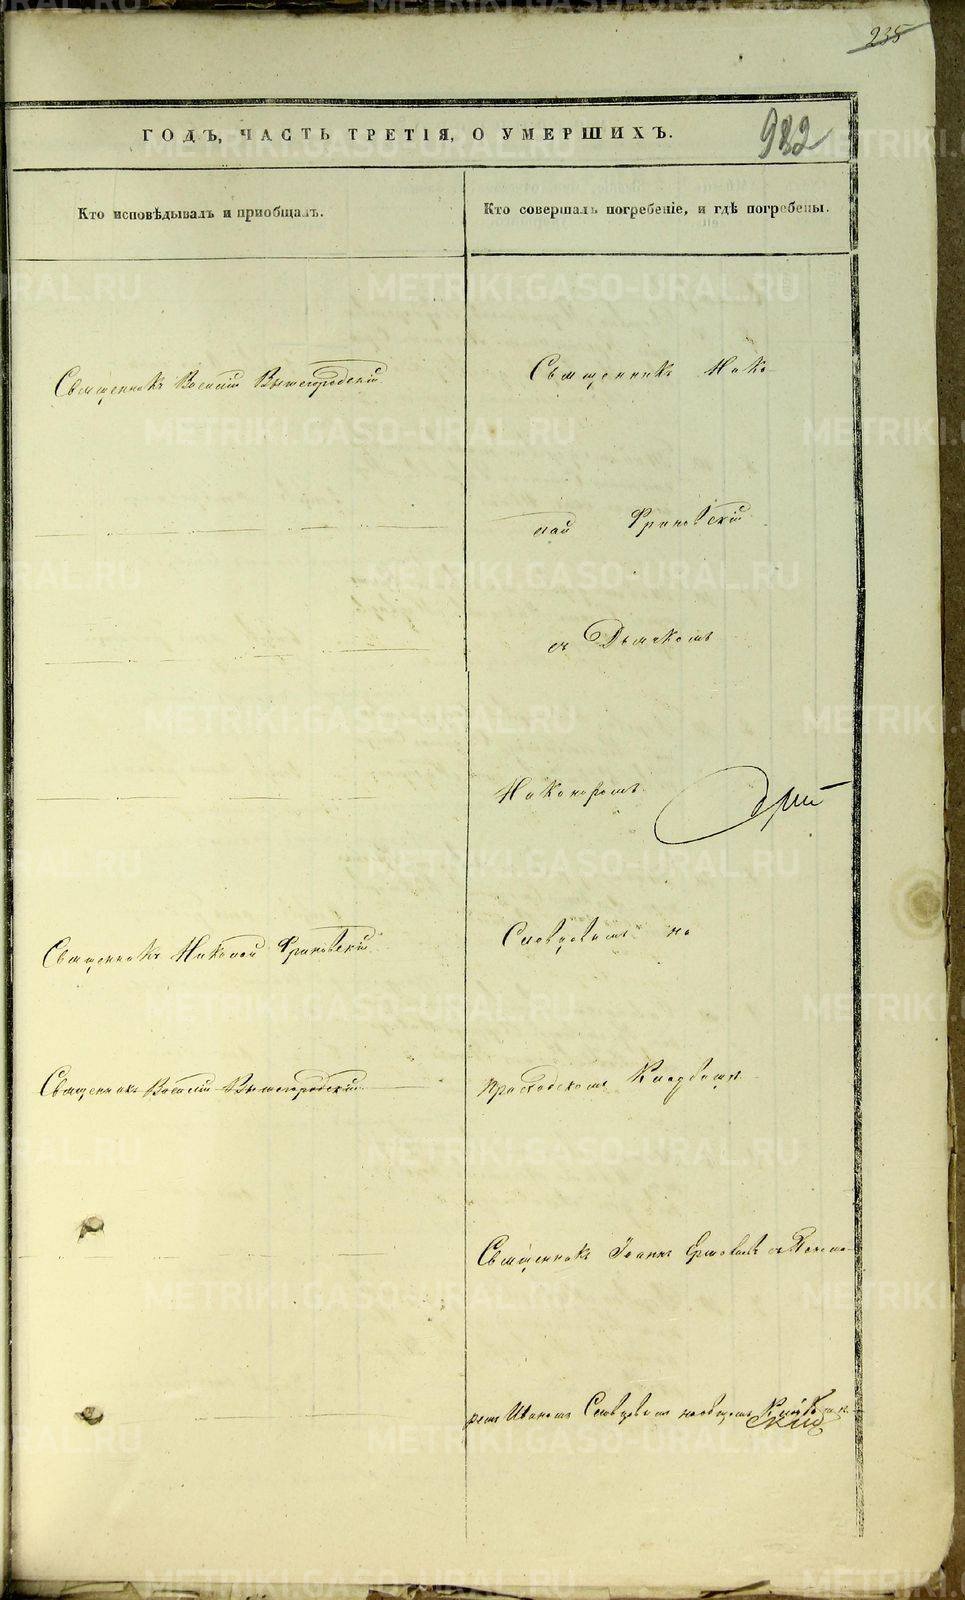 235
ГОДЪ, ЧАСТЬ ТРЕТІЯ, О УМЕРШИХЪ.
982
Кто исповѣдывалъ и пріобщалъ.
Кто совершалъ погребеніе, и гдѣ погребены.
Священникъ Василій Вышегородскій
Священникъ Нико-
лай Фриновскій
съ Дьячкомъ
Никаноромъ
Священникъ Николай Фриновскій
Словцовымъ на
Священникъ Василій Вышегородскій
Приходскомъ Кладбищѣ
Священникъ Іоаннъ съ Понома-
ремъ Иваномъ Словцовымъ
METRIKI.GASO-URAL.RU